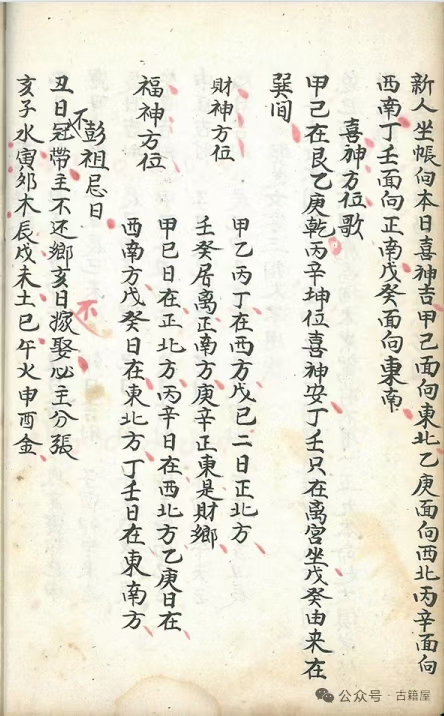 新人坐帳向本日喜神吉甲己面向東北乙庚面向西北丙辛面向
西南丁壬面向正南戊癸面向東南
喜神方位歌
甲己在艮乙庚乾丙辛坤位喜神安丁壬只在离宮坐戊癸由来在
巽间
財神方位
甲乙丙丁在西方戊己二日正北方
壬癸居离正南方庚辛正東是財鄉
福神方位
甲己日在正北方丙辛日在西北方乙庚日在
西南方戊癸日在東北方丁壬日在東南方
彭祖忌日
丑日不冠帶主不还鄉亥日不嫁娶必主分張
亥子水寅卯木辰戌未土巳午火申酉金
公众号·古籍屋